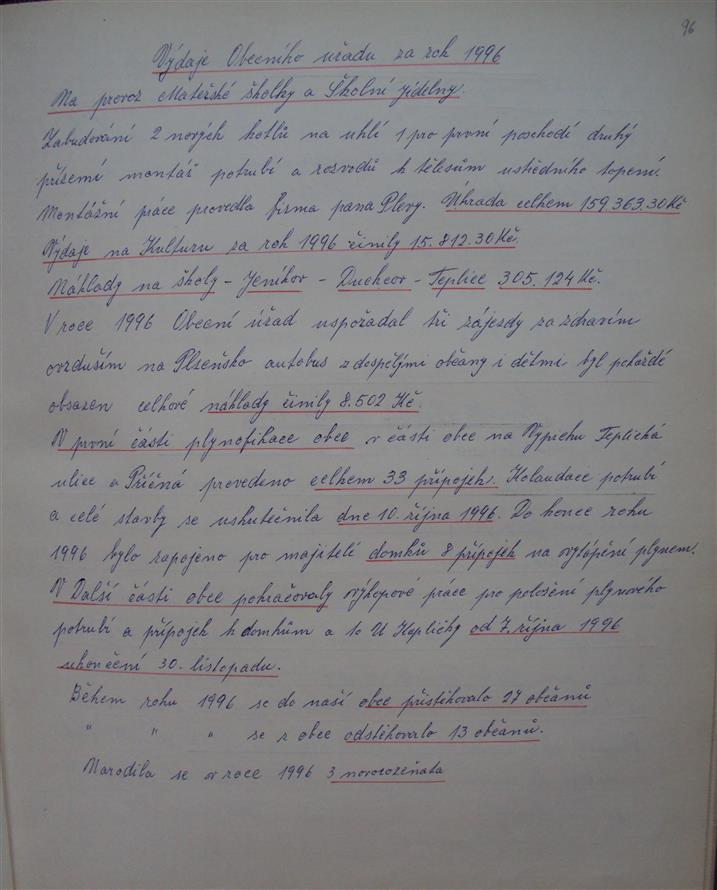 96
Výdaje Obecního úřadu za rok 1996
Na provoz Mateřské školky a Školní jídelny.
Zabudování 2 nových kotlů na uhlí 1 pro první poschodí druhý
přízemí montáš potrubí a rozvodů k tělesům ustředního topení.
Montážní práce provedla firma pana Plevy. Úhrada celkem 159 363.30 Kč
Výdaje na Kulturu za rok 1996 činily 15.812.30 Kč.
Náklady na školy - Jeníkov - Duchcov - Teplice 305.124 Kč.
V roce 1996 Obecní úřad uspořadal tři zájezdy za zdravím
ovzduším na Plzeňsko autobus z dospělými občany i dětmi byl pokaždé
obsazen celkové náklady činily 8.502 Kč.
V první části plynofikace obce v části obce na Výprchu Teplická
ulice a Příčná provedeno celkem 33 přípojek. Kolaudace potrubí
a celé stavby se uskutečnila dne 10. října 1996. Do konce roku
1996 bylo zapojeno pro majitelé domků 8 přípojek na vytápění plynem.
V Další části obce pokračovaly výkopové práce pro položení plynového
potrubí a přípojek k domkům a to U Kapličky od 7. října 1996
ukončení 30. listopadu.
Během roku 1996 se do naší obce přistěhovalo 27 občanů
" " " se z obce odstěhovalo 13 občanů.
Narodila se v roce 1996 3 novorozeňata